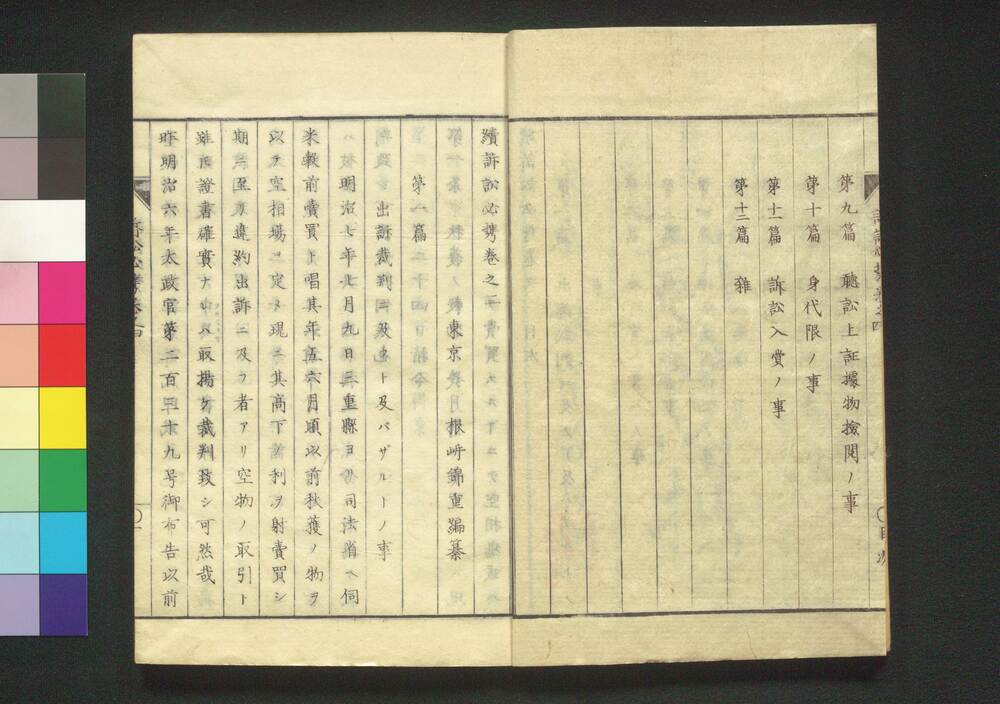 第九篇 聽訟上証據物撿閲ノ事
第十篇 身代限ノ事
第十一篇 訴訟入費ノ事
第十二篇 雜
目次
續訴訟必携卷之
東京 根岍錦重編纂
第一篇
出訴裁判ニ及ブト及バザルトノ事
明治七年七月九日三重縣ヨリ司法省ヘ伺
米穀前賣買ト唱其年五六月頃以前秋獲ノ物ヲ
以テ空相場ヲ定メ現ニ其高下ノ利ヲ射賣買シ
期ニ至リ違約出訴ニ及フ者アリ空物ノ取引ト
雖モ證書確實ナレハ取揚ケ裁判致シ可然哉
昨明治六年太政官第二百三十九号御布告以前